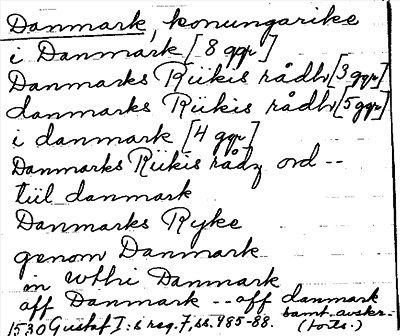 Danmark, konungarike
i Danmark [8 ggr]
Danmarks Riikis rådh [3 ggr]
danmarks Riikis rådh [5 ggr]
i danmark [4 ggr]
Danmarks Riikis rådz ord --
tiil danmark
Danmarks Ryke
genom Danmark
in wthi Danmark
aff Danmark -- aff danmark
1530 Gustaf I:s reg. 7, ss. 485-88. samt. avskr. (forts.)